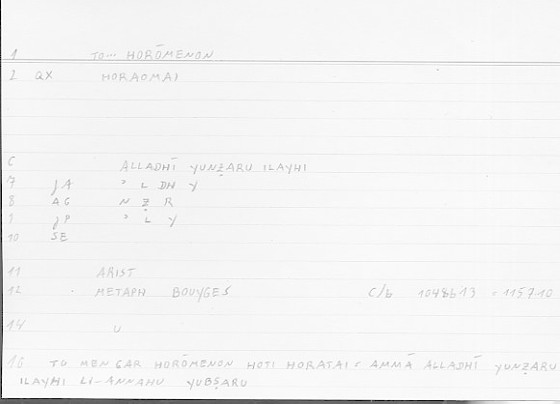 1 TO... HORŌMENON
2 QX HORAOMAI
6 ALLADHĪ YUNẒARU ILAYHI
7 JA ʾ L DH Y
8 AG N Ẓ R
9 JP ʾ L Y
10 SE
11 ARIST
12 METAPH BOUYGES C/b 1048b13 = 1157.10
14 U
16 TO MEN GAR HORŌMENON HOTI HORATAI = AMMĀ ALLADHĪ YUNẒARU
ILAYHI LI-ANNAHU YUBṢARU